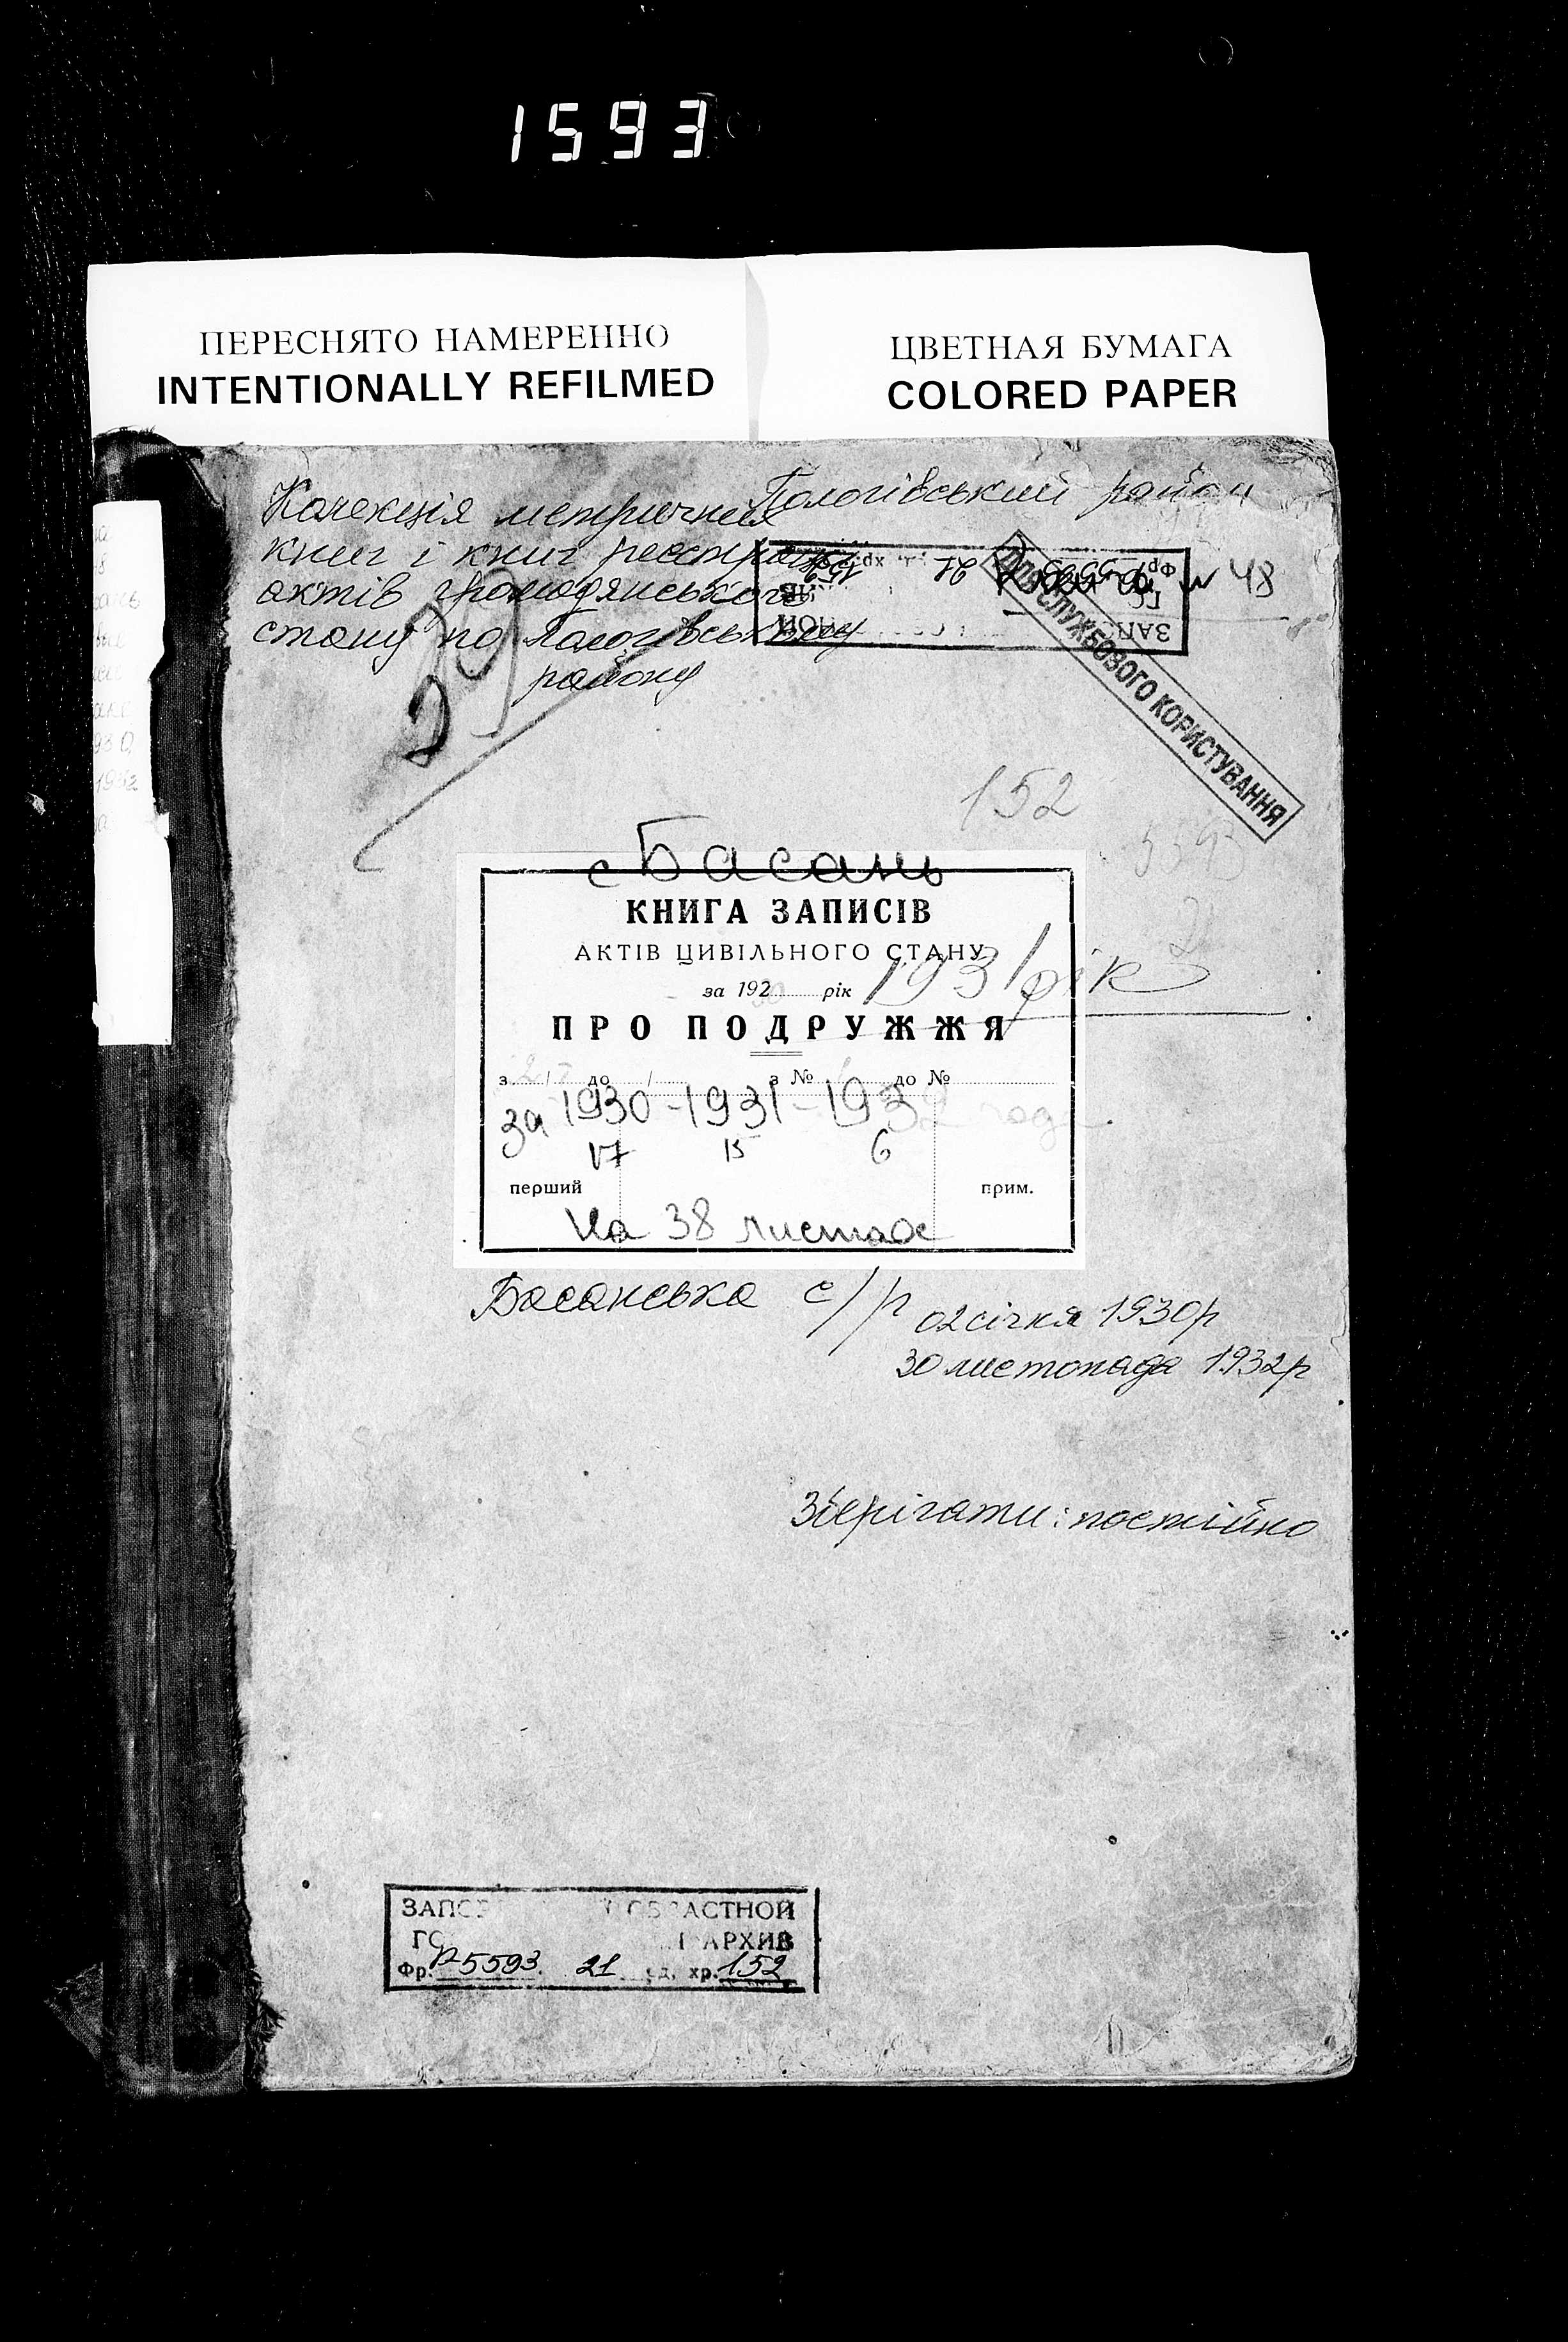 1593
ПЕРЕСНЯТО НАМЕРЕННО
INTENTIONALLY REFILMED
ЦВЕТНАЯ БУМАГА
COLORED PAPER
Пологівський район
Колекція метричних
книг і книг реєстрації
актів громадянського
стану по Пологівському
району
№ 48
ДЛЯ СЛУЖБОВОГО КОРИСТУВАННЯ
29
152
5593
с Басань
КНИГА ЗАПИСІВ
АКТІВ ЦИВІЛЬНОГО СТАНУ
за 192 рік 1931 рік
ПРО ПОДРУЖЖЯ
з до з № до №
за 1930-1931-1932 года
17 15 6
перший прим.
На 38 листах
Басанська с/р
02 січня 1930р
30 листопада 1932р
Зберігати: постійно
ОБЛАСТНОЙ
АРХИВ
Фр. Р-5593 21 ед. хр. 152